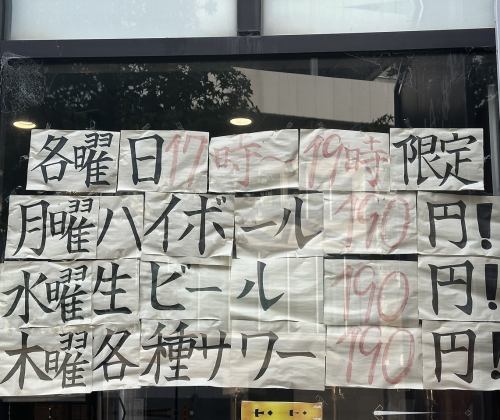 各曜日17時〜19時限定
月曜ハイボール190円!
水曜生ビール190円!
木曜各種サワー190円!